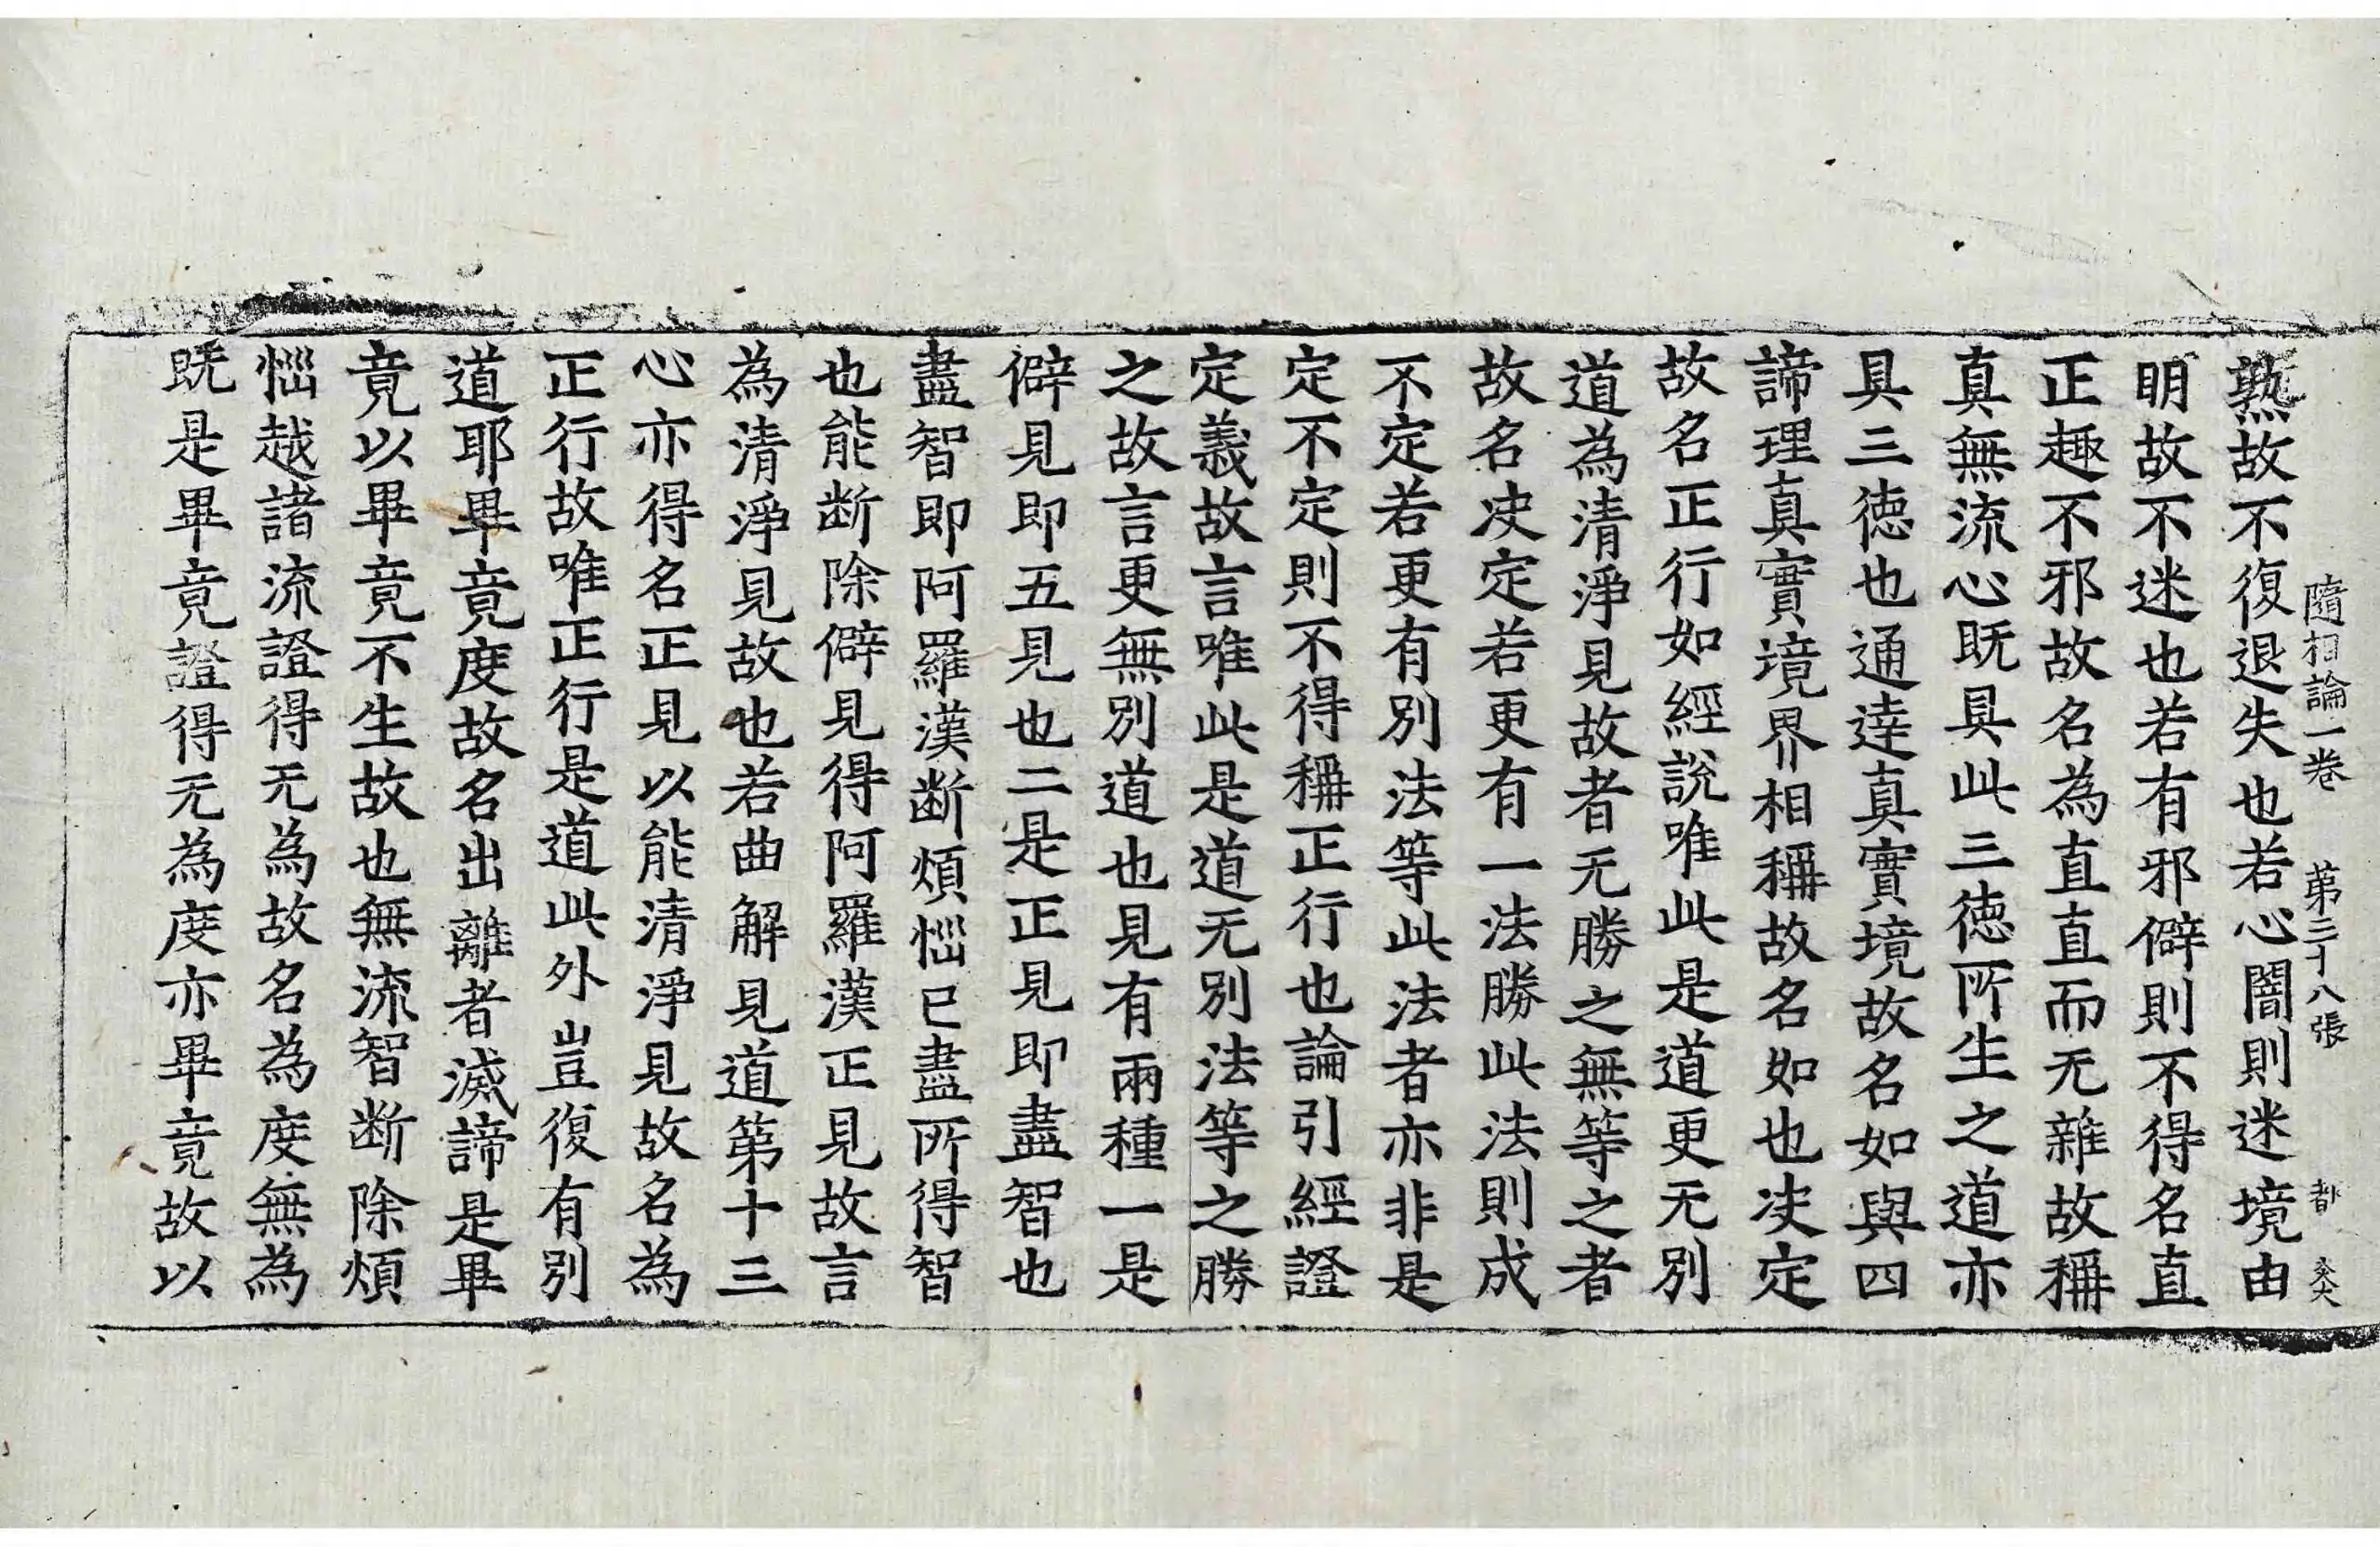 隨相論一卷 第三十八張 都
熟故不復退失也若心闇則迷境由
明故不迷也若有邪僻則不得名直
正趣不邪故名為直直而无雜故稱
真無流心既具此三徳所生之道亦
具三徳也通達真實境故名如與四
諦理真實境界相稱故名如也决定
故名正行如經說唯此是道更无別
道為清淨見故者无勝之無等之者
故名决定若更有一法勝此法則成
不定若更有別法等此法者亦非是
定不定則不得稱正行也論引經證
定義故言唯此是道无別法等之勝
之故言更無別道也見有兩種一是
僻見即五見也二是正見即盡智也
盡智即阿羅漢断煩惱已盡所得智
也能断除僻見得阿羅漢正見故言
為清淨見故也若曲解見道第十三
心亦得名正見以能清淨見故名為
正行故唯正行是道此外豈復有別
道耶畢竟度故名出離者滅諦是畢
竟以畢竟不生故也無流智断除煩
惱越諸流證得无為故名為度無為
既是畢竟證得无為度亦畢竟故以